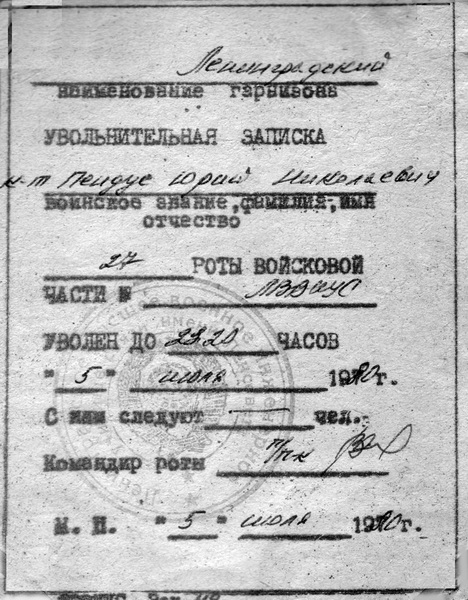 Ленинградский
наименование гарнизона
УВОЛЬНИТЕЛЬНАЯ ЗАПИСКА
к-т Пендус Юрий Николаевич
воинское звание, фамилия, имя
отчество
27 РОТЫ ВОЙСКОВОЙ
ЧАСТИ № ЛВВИУС
УВОЛЕН ДО 23.20 ЧАСОВ
" 5 " июля 1980 г.
С ним следуют — чел.
Командир роты п/пк
М. П. " 5 " июля 1980 г.